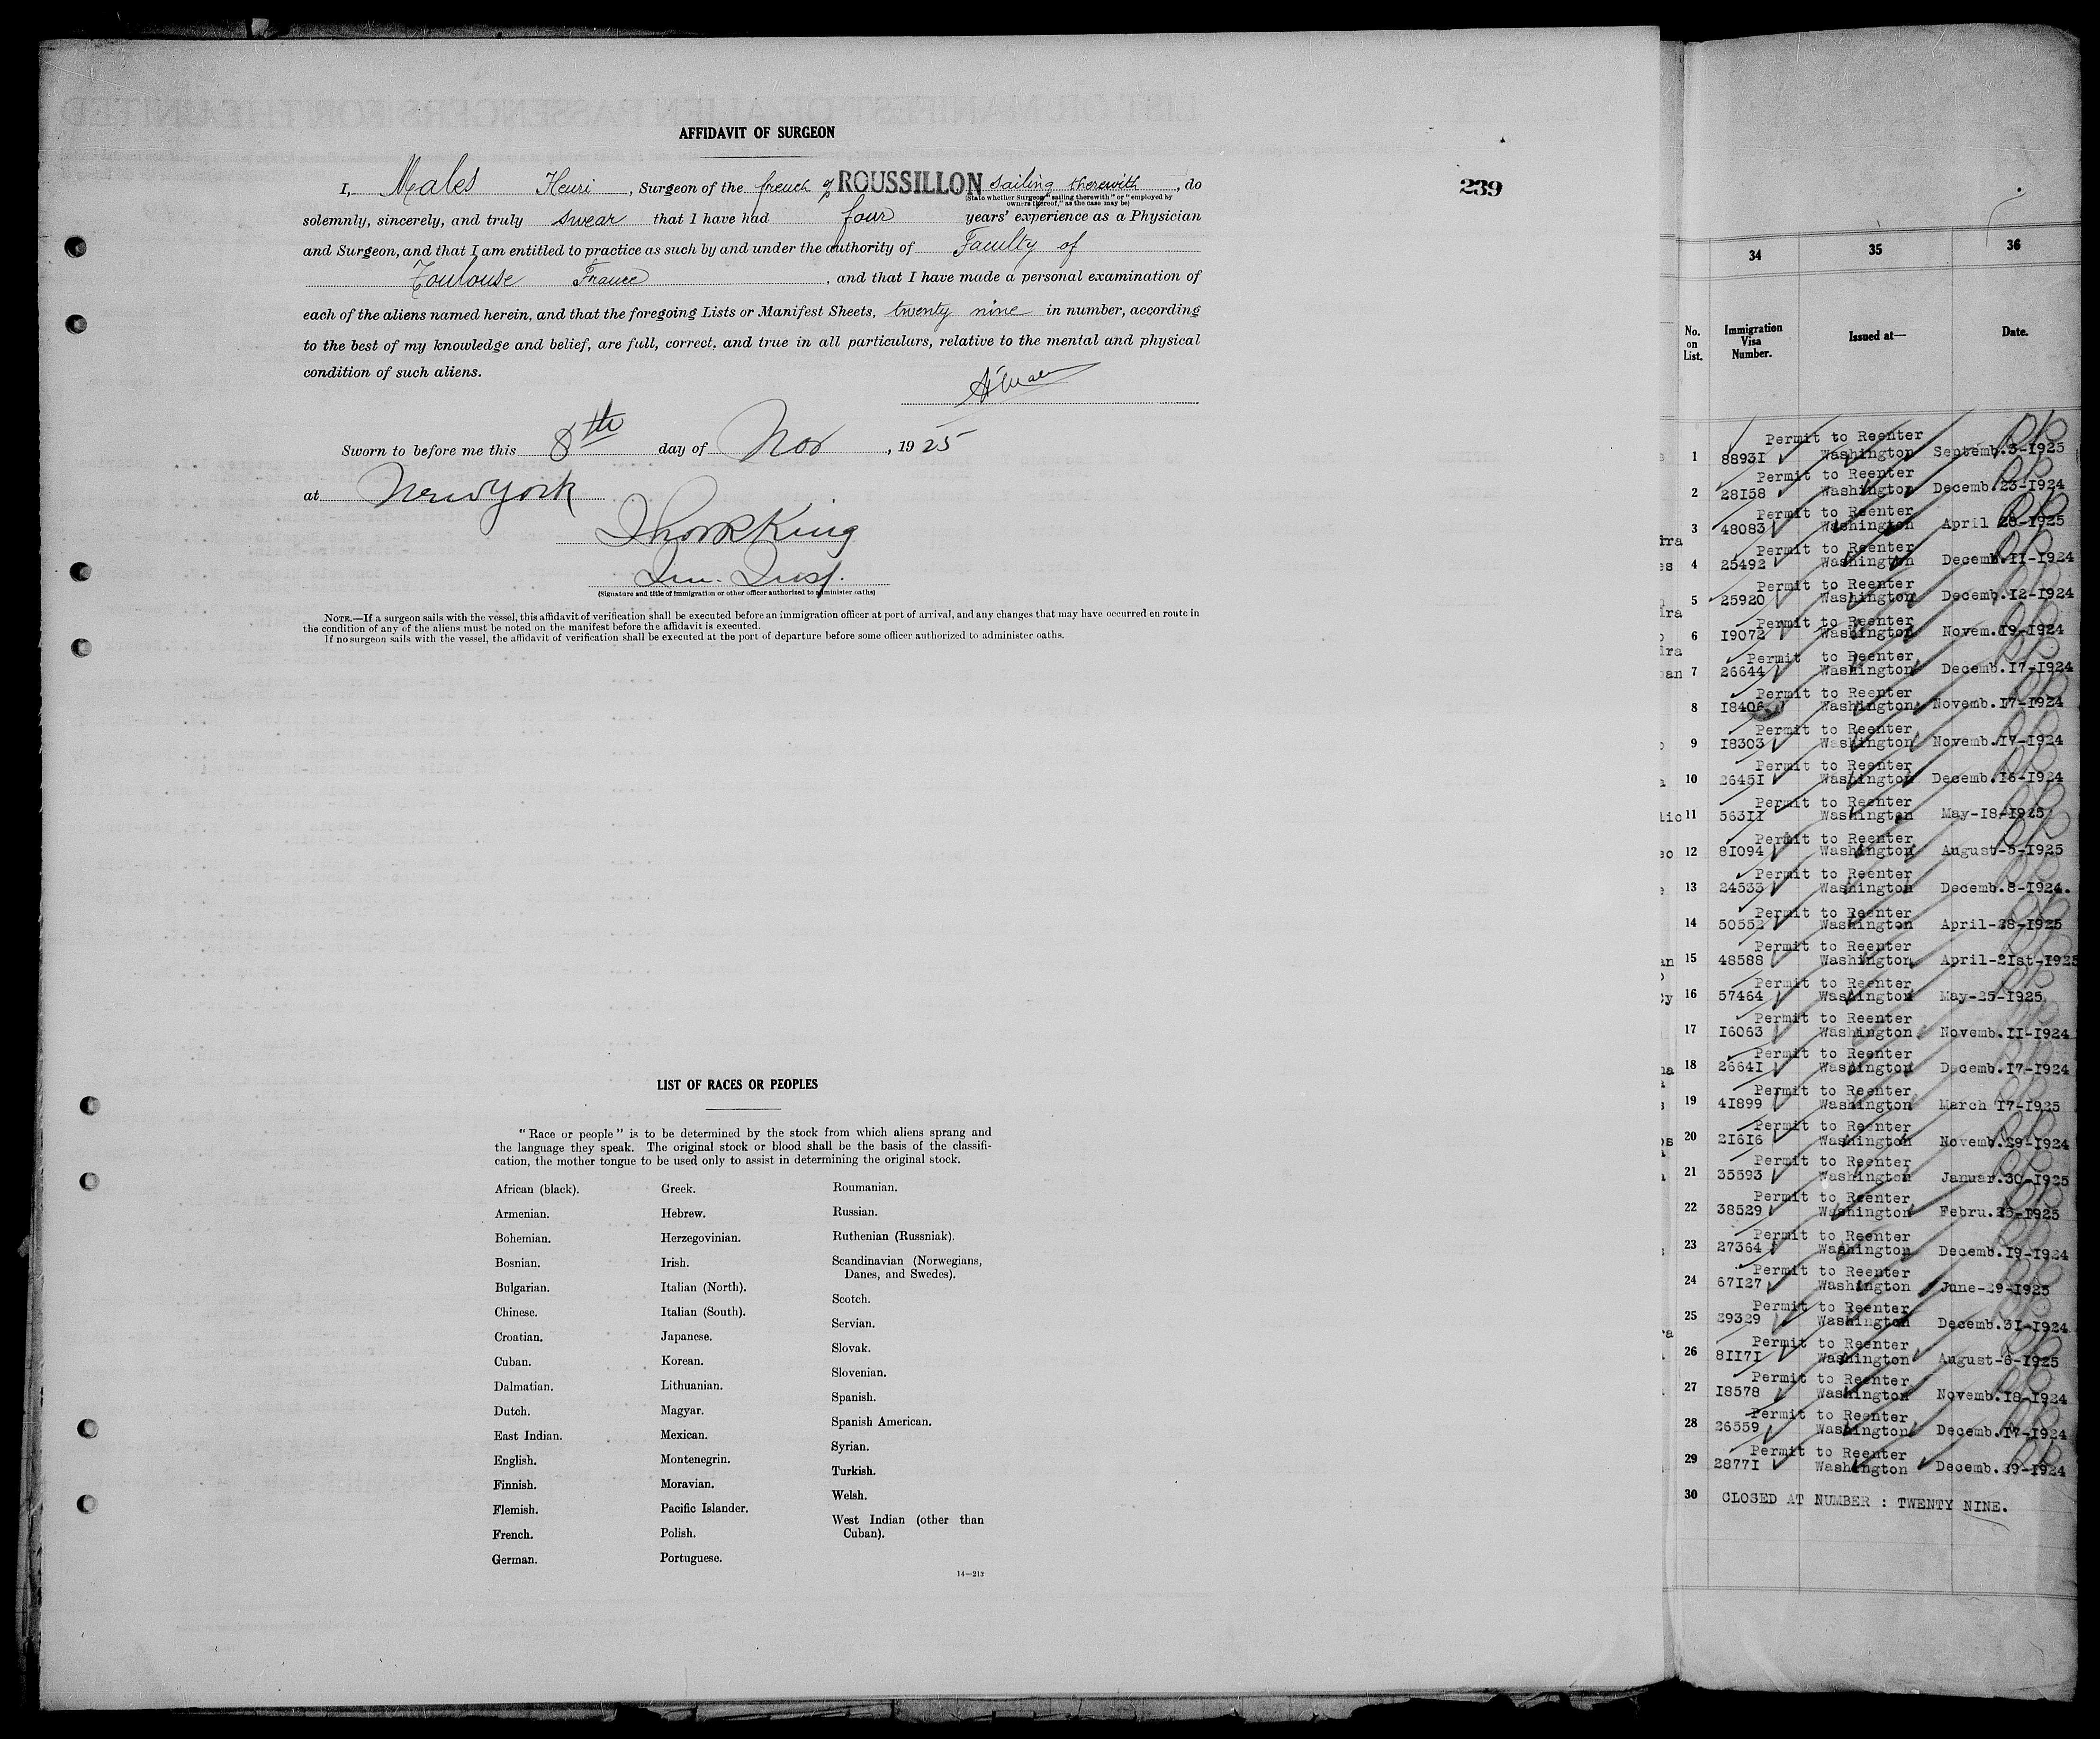 AFFIDAVIT OF SURGEON
I, Males Henri, Surgeon of the french ROUSSILLON sailing therewith, do
(State whether Surgeon "sailing therewith" or "employed by
owners thereof," as the case may be)
239
solemnly, sincerely, and truly swear that I have had four years' experience as a Physician
and Surgeon, and that I am entitled to practice as such by and under the authority of Faculty of
Toulouse France, and that I have made a personal examination of
each of the aliens named herein, and that the foregoing Lists or Manifest Sheets, twenty nine in number, according
to the best of my knowledge and belief, are full, correct, and true in all particulars, relative to the mental and physical
condition of such aliens.
Sworn to before me this 8th day of Nov, 1925
at New York
King
Imm. Insp.
(Signature and title of immigration or other officer authorized to administer oaths)
NOTE.—If a surgeon sails with the vessel, this affidavit of verification shall be executed before an immigration officer at port of arrival, and any changes that may have occurred en route in
the condition of any of the aliens must be noted on the manifest before the affidavit is executed.
If no surgeon sails with the vessel, the affidavit of verification shall be executed at the port of departure before some officer authorized to administer oaths.
LIST OF RACES OR PEOPLES
"Race or people" is to be determined by the stock from which aliens sprang and
the language they speak. The original stock or blood shall be the basis of the classifi-
cation, the mother tongue to be used only to assist in determining the original stock.
African (black).
Armenian.
Bohemian.
Bosnian.
Bulgarian.
Chinese.
Croatian.
Cuban.
Dalmatian.
Dutch.
East Indian.
English.
Finnish.
Flemish.
French.
German.
Greek.
Hebrew.
Herzegovinian.
Irish.
Italian (North).
Italian (South).
Japanese.
Korean.
Lithuanian.
Magyar.
Mexican.
Montenegrin.
Moravian.
Pacific Islander.
Polish.
Portuguese.
Roumanian.
Russian.
Ruthenian (Russniak).
Scandinavian (Norwegians,
Danes, and Swedes).
Scotch.
Servian.
Slovak.
Slovenian.
Spanish.
Spanish American.
Syrian.
Turkish.
Welsh.
West Indian (other than
Cuban).
14—213
34 35 36
No. on List. Immigration Visa Number. Issued at— Date.
Permit to Reenter
1 88931 Washington Septemb.3-1925
Permit to Reenter
2 28158 Washington Decemb.23-1924
Permit to Reenter
3 48083 Washington April 20-1925
Permit to Reenter
4 25492 Washington Decemb.11-1924
Permit to Reenter
5 25920 Washington Decemb.12-1924
Permit to Reenter
6 19072 Washington Novem.19-1924
Permit to Reenter
7 26644 Washington Decemb.17-1924
Permit to Reenter
8 18406 Washington Novemb.17-1924
Permit to Reenter
9 18303 Washington Novemb.17-1924
Permit to Reenter
10 26451 Washington Decemb.16-1924
Permit to Reenter
11 56311 Washington May-18-1925
Permit to Reenter
12 81094 Washington August-5-1925
Permit to Reenter
13 24533 Washington Decemb.8-1924.
Permit to Reenter
14 50552 Washington April-28-1925
Permit to Reenter
15 48588 Washington April-21st-1925
Permit to Reenter
16 57464 Washington May-25-1925
Permit to Reenter
17 16063 Washington Novemb.11-1924
Permit to Reenter
18 26641 Washington Decemb.17-1924
Permit to Reenter
19 41899 Washington March 17-1925
Permit to Reenter
20 21616 Washington Novemb.29-1924
Permit to Reenter
21 35593 Washington Januar.30-1925
Permit to Reenter
22 38529 Washington Febru.25-1925
Permit to Reenter
23 27364 Washington Decemb.19-1924
Permit to Reenter
24 67127 Washington June-29-1925
Permit to Reenter
25 29329 Washington Decemb.31-1924
Permit to Reenter
26 81171 Washington August-6-1925
Permit to Reenter
27 18578 Washington Novemb.18-1924
Permit to Reenter
28 26559 Washington Decemb.17-1924
Permit to Reenter
29 28771 Washington Decemb.29-1924
30 CLOSED AT NUMBER : TWENTY NINE.